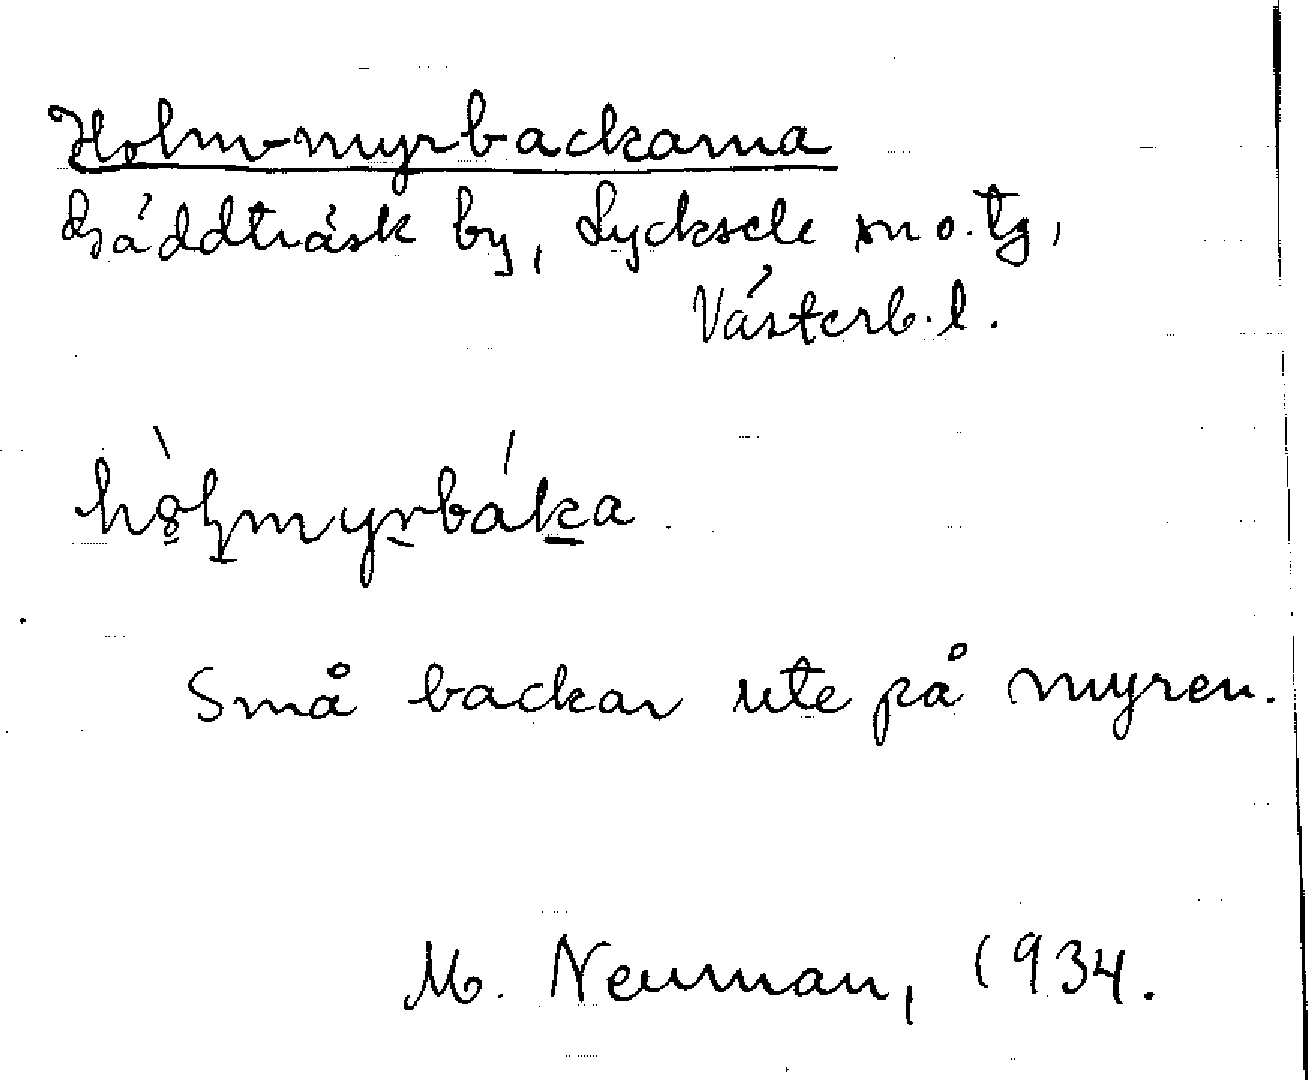 Holm-myrbackarna
Gäddträsk by, Lycksele sn o. tg,
Västerb. l.
Små backar ute på myren.
M. Neuman, 1934.